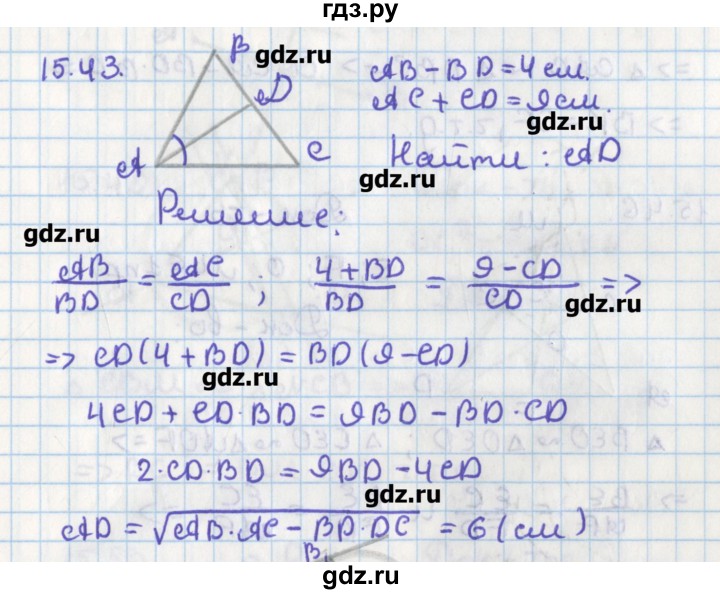 гдз.ру
15.43.
B
D
A
C
gdz.ru
AB - BD = 4 см.
AC + CD = 9 см.
gdz.ru
Найти: AD
gdz.ru
Решение:
gdz.ru
AB/BD = AC/CD ; (4 + BD)/BD = (9 - CD)/CD =>
gdz.ru
=> CD(4 + BD) = BD(9 - CD)
gdz.ru
4CD + CD·BD = 9BD - BD·CD
2·CD·BD = 9BD - 4CD
gdz.ru
AD = √(AB·AC - BD·DC) = 6 (см)
B
gdz.ru